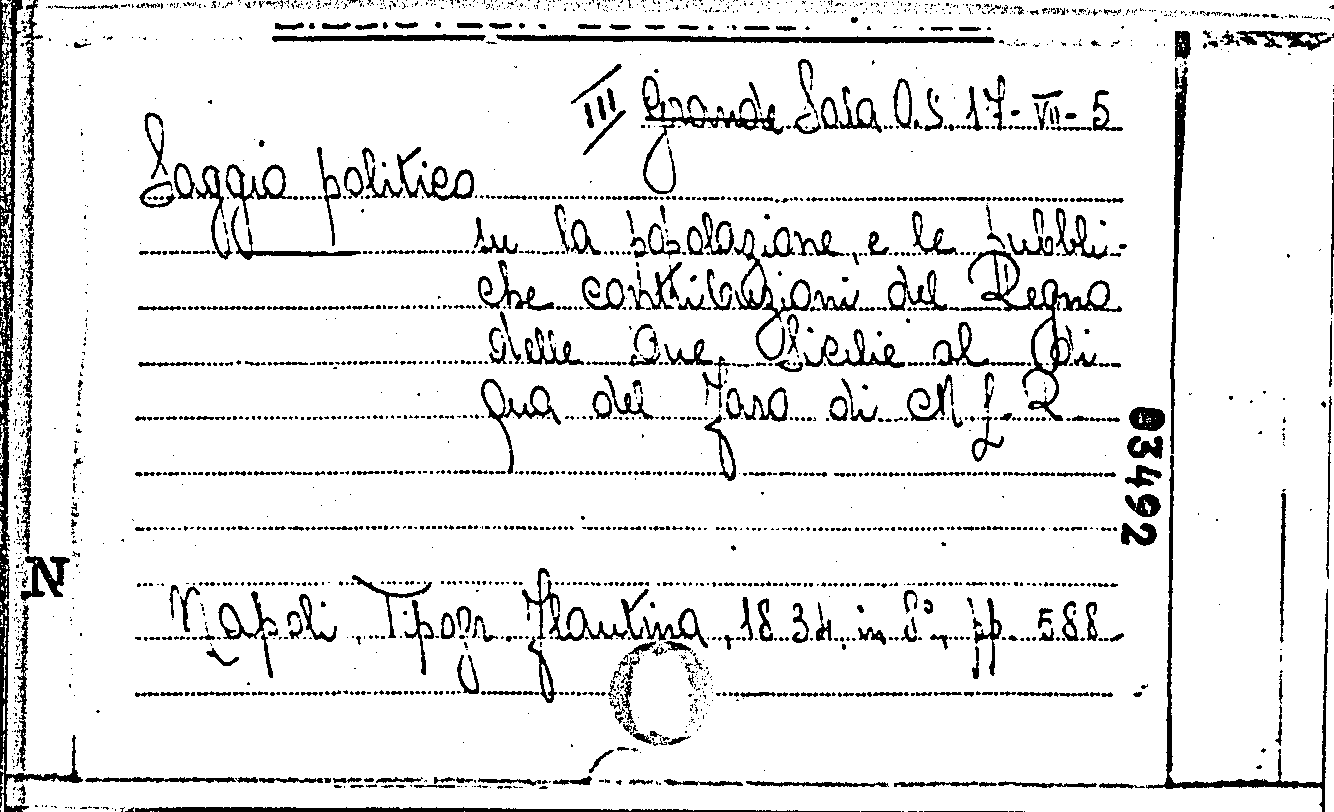 III Grande Sala O.S. 17-VII-5
Saggio politico
su la popolazione e le pubbli-
che contribuzioni del Regno
delle Due Sicilie al di
qua del Faro di M. L. R.
03492
N
Napoli, Tipogr. Flautina, 1834, in 8°, pp. 588.